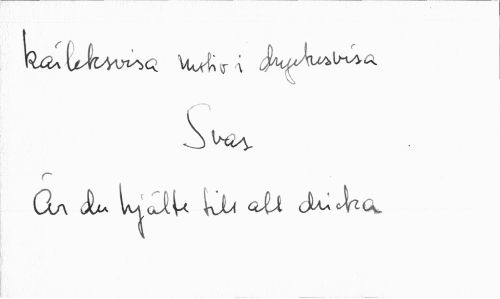 kärleksvisa motiv i dryckesvisa
Svar
Är du hjälte till att dricka